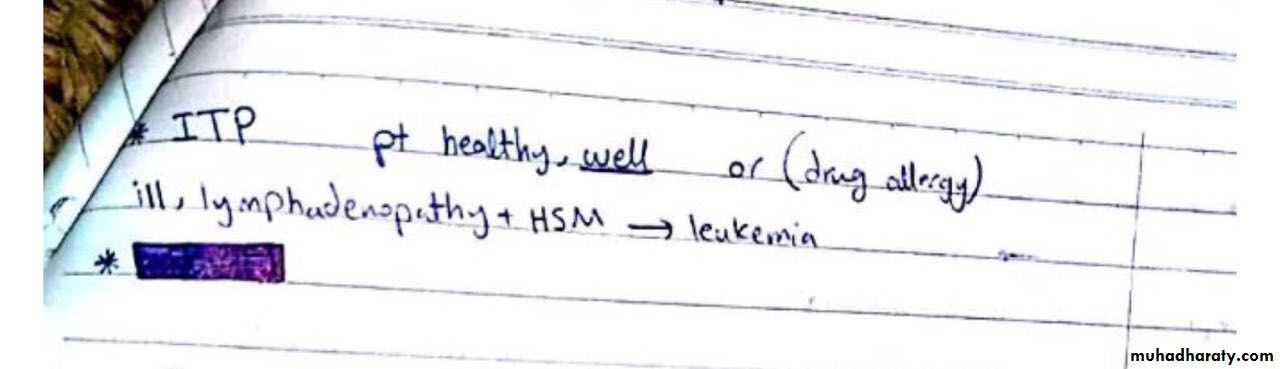 * ITP pt healthy, well or (drug allergy)
ill, lymphadenopathy + HSM → leukemia
*
muhadharaty.com